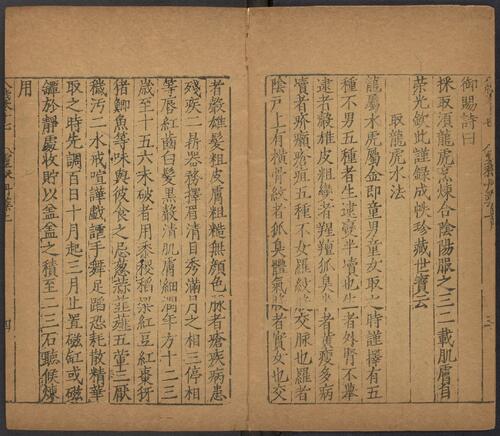 御賜詩曰
採取須龍虎烹煉合陰陽服之三二載肌膚自
榮光欽此謹錄成帙珍藏世寳云
取龍虎水法
龍屬水虎屬金即童男童女取之時謹擇有五
種不男五種者生逮變半犢也生者外腎不舉
逮者聲雄皮粗變者狐臭也半者黃瘦多病
犢者疥癩瘡疽五種不女羅紋鼓交脉也羅者
陰戶上有橫骨紋者狐臭體氣鼓者實女也交
者聲雄髮粗皮膚粗糙無顏色脉者瘡疾病患
殘疾二昇器務擇眉清目秀滿月之相三停相
等唇紅齒白髮黑聲清肌膚細潤年方十二三
歲至十五六未破者用黍稷稻粱紅豆紅棗
猪鯽魚等味與彼食之忌葱蒜韭薤五葷二厭
穢汚二水戒喧譁戲謔手舞足蹈恐耗散精華
取之時先調百日十月起三月止置磁缸或磁
罈於靜處收貯以盆盆之積至二三石聽候煉
用